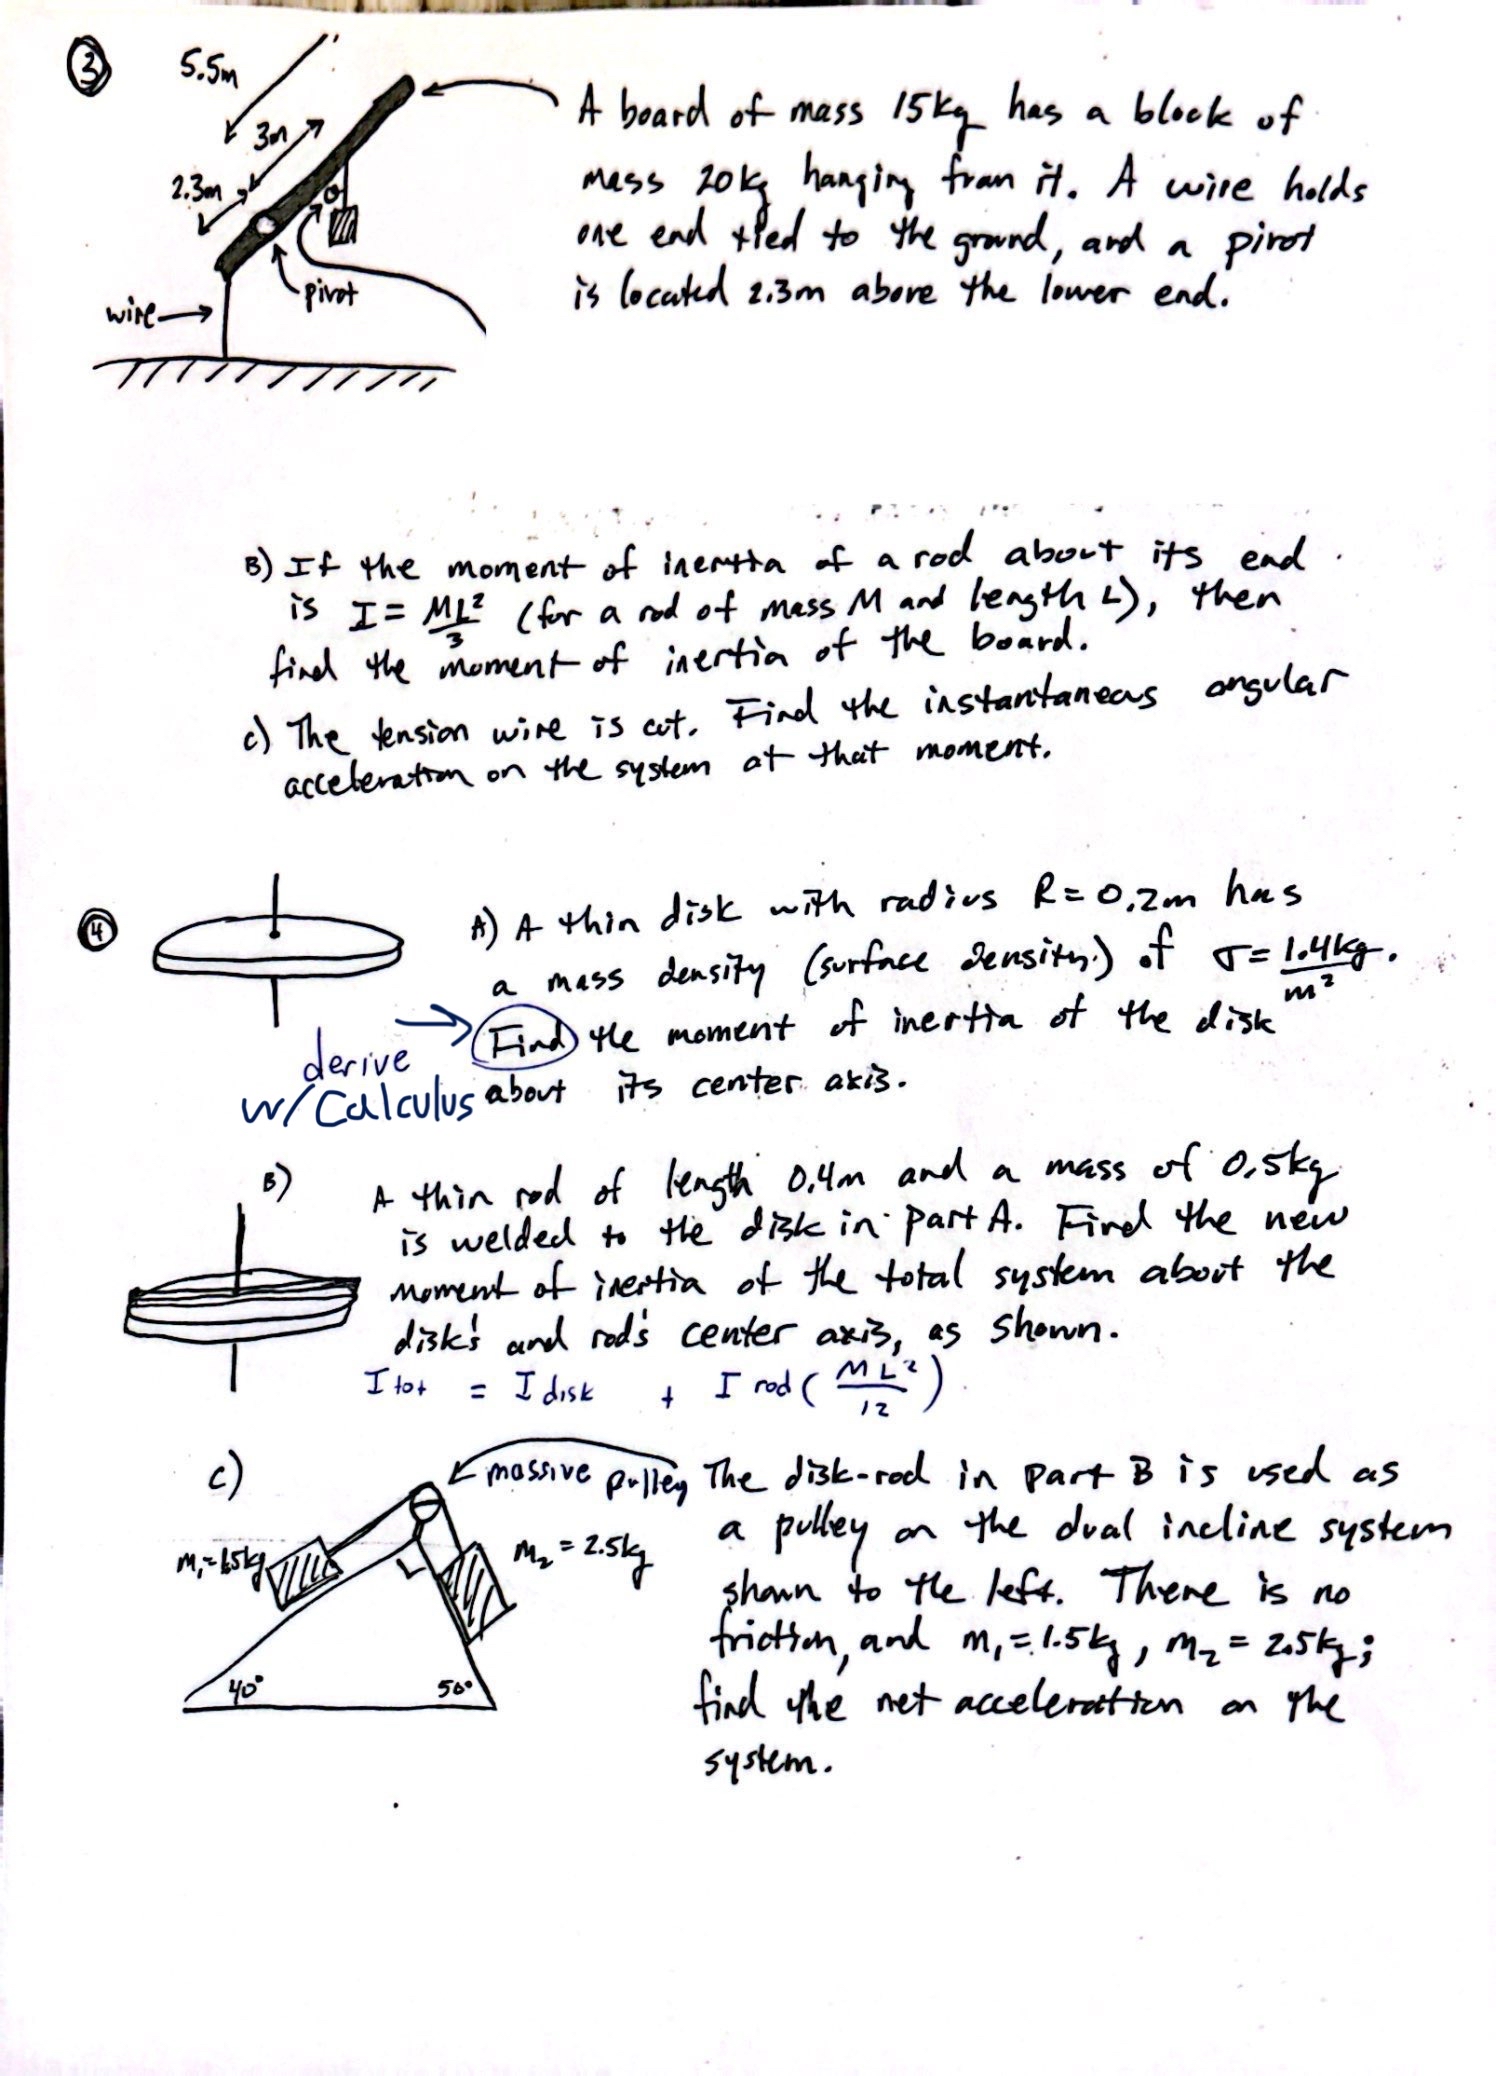 3
5.5m
3m
2.3m
θ
pivot
wire
A board of mass 15kg has a block of
mass 20kg hanging from it. A wire holds
one end tied to the ground, and a pivot
is located 2.3m above the lower end.
B) If the moment of inertia of a rod about its end
is I = ML²/3 (for a rod of mass M and length L), then
find the moment of inertia of the board.
c) The tension wire is cut. Find the instantaneous angular
acceleration on the system at that moment.
4
A) A thin disk with radius R = 0.2m has
a mass density (surface density) of σ = 1.4kg/m².
derive w/ Calculus
Find the moment of inertia of the disk
about its center axis.
B)
A thin rod of length 0.4m and a mass of 0.5kg
is welded to the disk in part A. Find the new
moment of inertia of the total system about the
disk's and rod's center axis, as shown.
I tot = I disk + I rod (ML²/12)
C)
massive pulley
m₁=1.5kg
m₂ = 2.5kg
40°
50°
The disk-rod in part B is used as
a pulley on the dual incline system
shown to the left. There is no
friction, and m₁ = 1.5kg, m₂ = 2.5kg;
find the net acceleration on the
system.